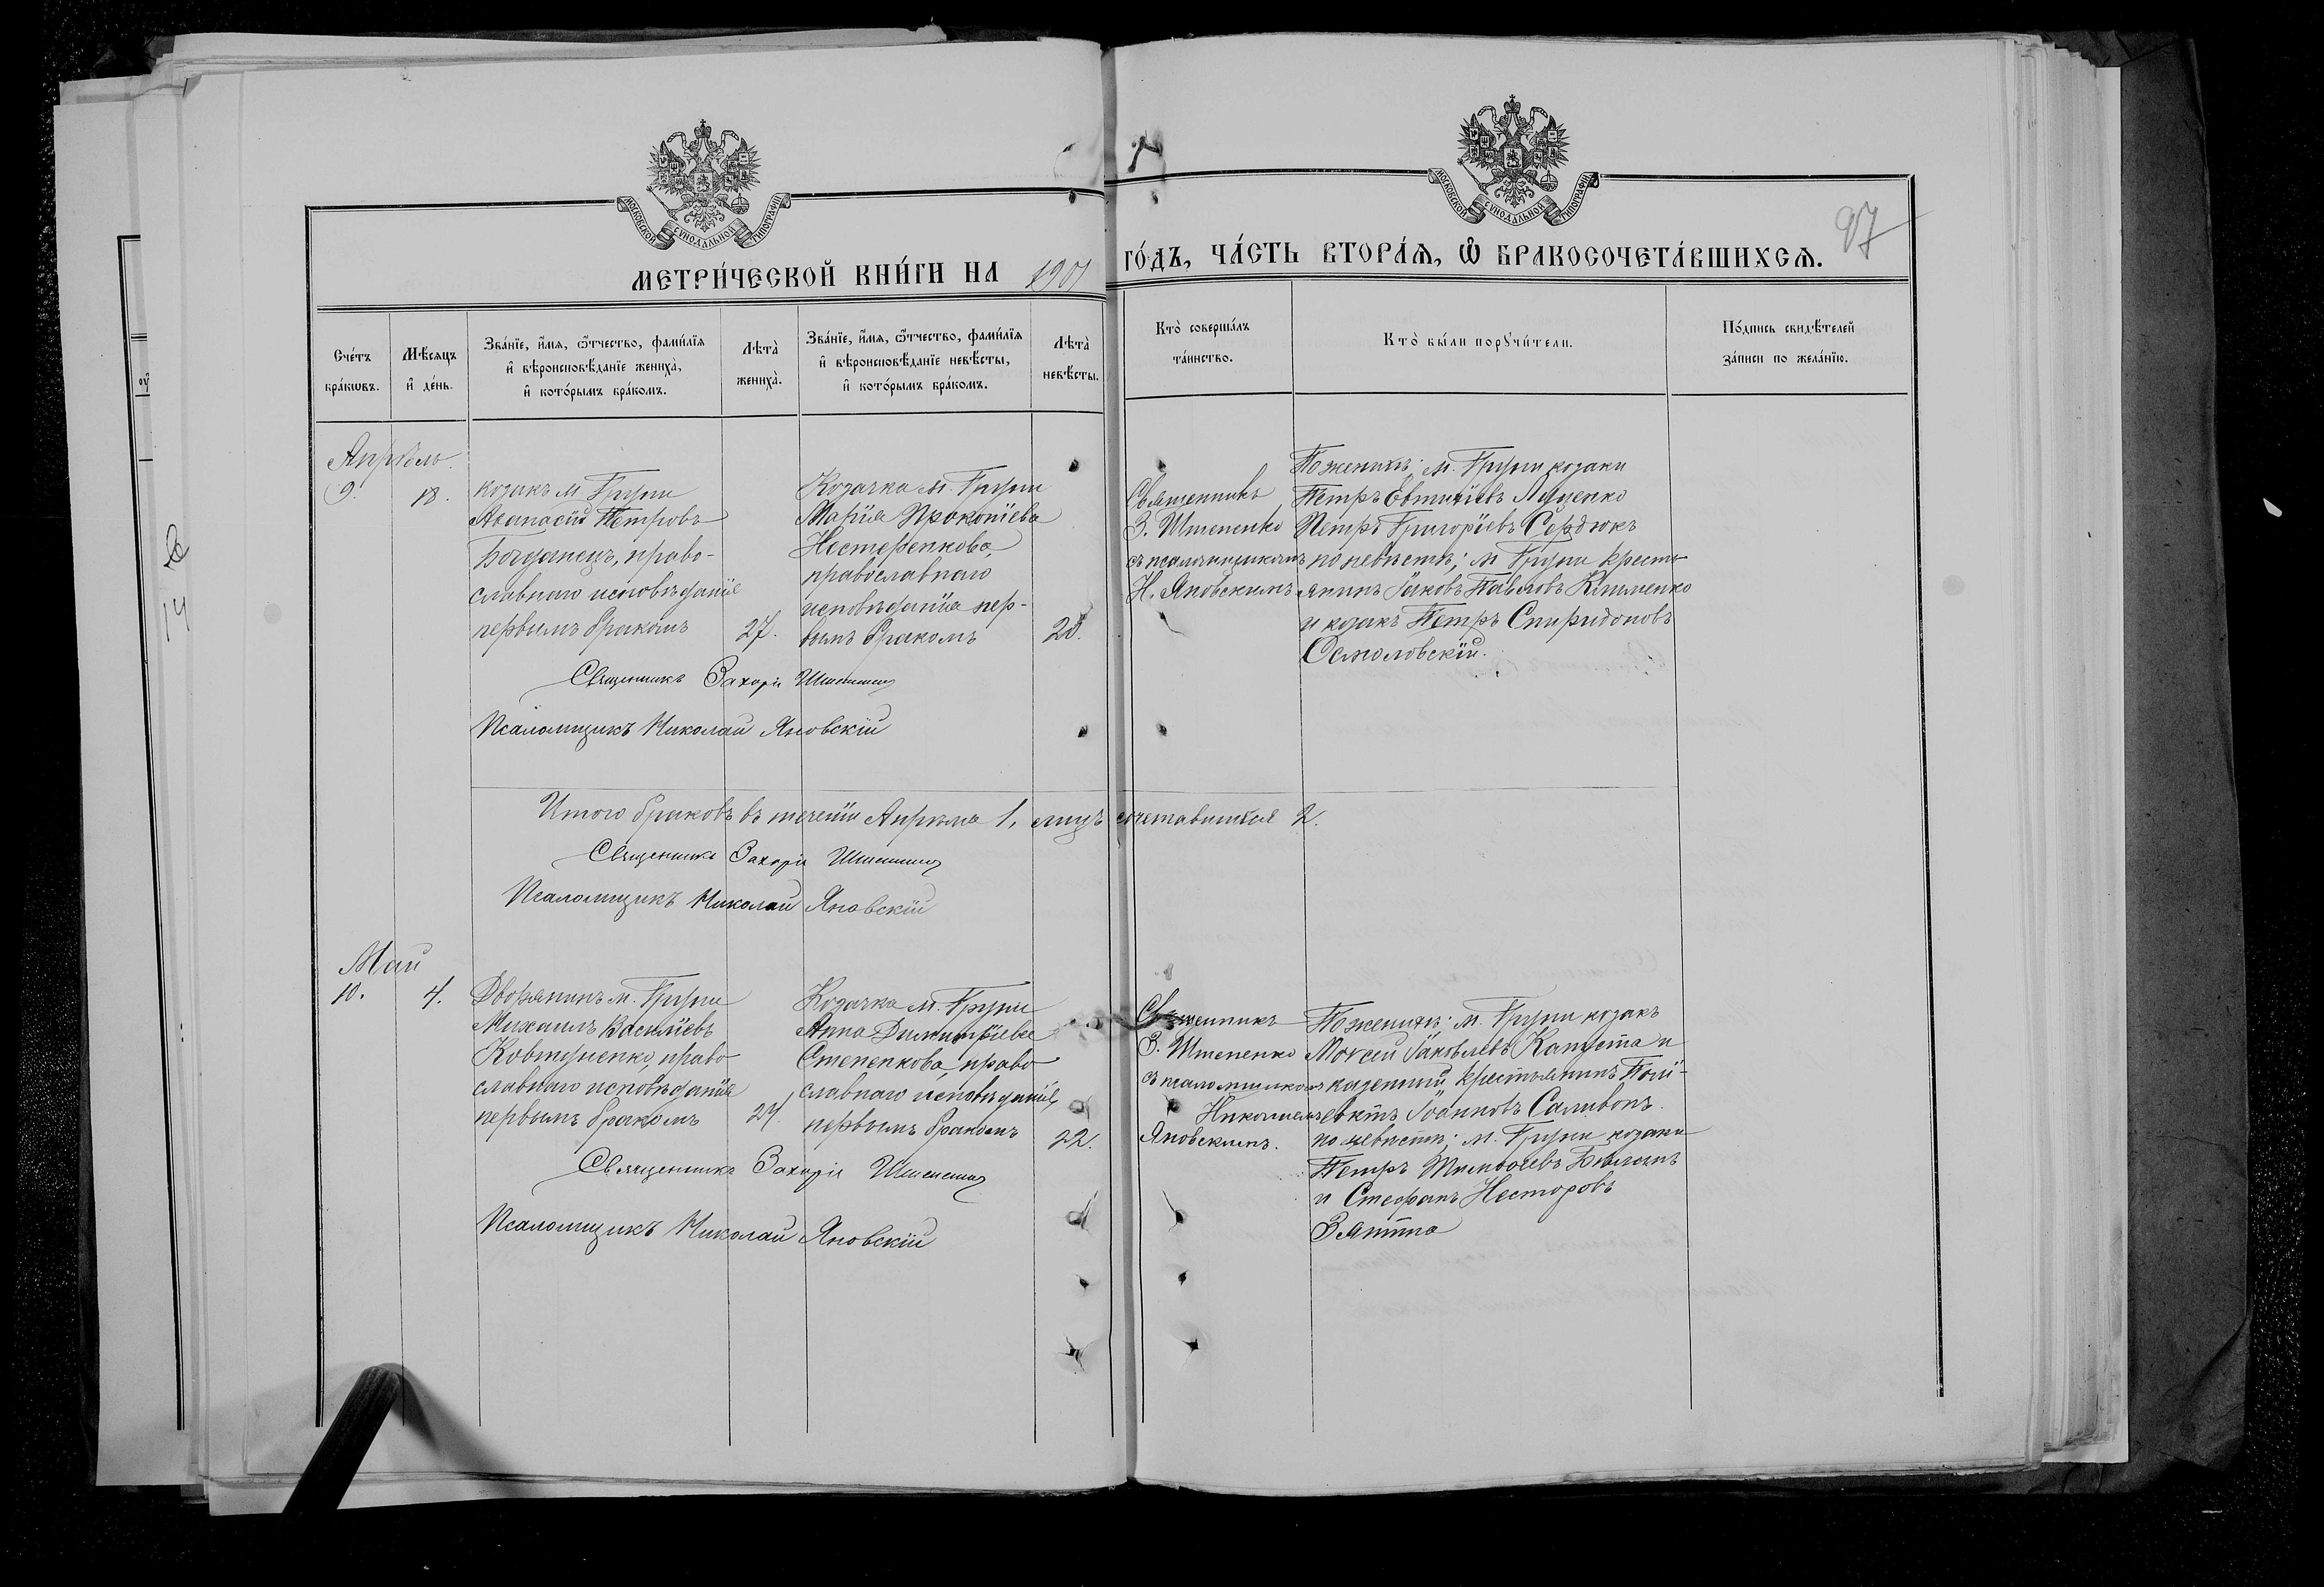 МОСКОВСКОЙ СѴНОДАЛЬНОЙ ТИПОГРАФІИ
МОСКОВСКОЙ СѴНОДАЛЬНОЙ ТИПОГРАФІИ
97
МЕТРИ́ЧЕСКОЙ КНИ́ГИ НА 1901 ГО́ДЪ, ЧА́СТЬ ВТОРА́Ѧ, Ѽ БРАКОСОЧЕТА́ВШИХСѦ.
Сче́тъ бра́кѡвъ.
Мѣ́сѧцъ и҆ де́нь.
Зва́нїе, и҆́мѧ, ѻ҆́тчество, фами́лїѧ
и҆ вѣроисповѣ́данїе жениха̀,
и҆ кото́рымъ бра́комъ.
Лѣ́та̀ жениха̀.
Зва́нїе, и҆́мѧ, ѻ҆́тчество, фами́лїѧ
и҆ вѣроисповѣ́данїе невѣ́сты,
и҆ кото́рымъ бра́комъ.
Лѣ́та̀ невѣ́сты.
Кто̀ соверша́лъ
та́инство.
Кто̀ бы́ли порꙋчи́тели.
По́дпись свидѣ́телей
за́писи по жела́нїю.
Апрѣль.
9.
18.
козакъ м. Груни
Аѳанасій Петровъ
Богданецъ, право-
славнаго исповѣданія
первымъ бракомъ
27.
Козачка м. Груни
Марія Прокопіева
Нестеренкова,
православнаго
исповѣданія пер-
вымъ бракомъ
20.
Священникъ
З. Штепенко
съ псаломщикомъ
Н. Яновскимъ
По женихѣ; м. Груни козаки
Петръ Евтихіевъ Луценко
Петръ Григоріевъ Сердюкъ
по невѣстѣ; м. Груни кресть
янинъ Іаковъ Павловъ Клименко
и козакъ Петръ Спиридоновъ
Осмоловскій.
Священникъ Захарія Штепенко
Псаломщикъ Николай Яновскій
Итого браковъ въ теченіи Апрѣля 1, лицъ сочетавшихся 2.
Священникъ Захарія Штепенко
Псаломщикъ Николай Яновскій
Май
10.
4.
Дворянинъ м. Груни
Михаилъ Василіевъ
Ковтуненко, право
славнаго исповѣданія
первымъ бракомъ
27.
Козачка м. Груни
Анна Димитріева
Степенкова, право
славнаго исповѣданія,
первымъ бракомъ
22.
Священникъ
З. Штепенко
съ псаломщикомъ
Николаемъ
Яновскимъ.
По женихѣ; м. Груни козакъ
Моѵсей Іаковлевъ Капуста и
казенный крестьянинъ Полі-
евктъ Іоанновъ Саливонъ.
по невѣстѣ; м. Груни козаки
Петръ Тимоѳеевъ
и Стефанъ Несторовъ
Зятта
Священникъ Захарія Штепенко
Псаломщикъ Николай Яновскій